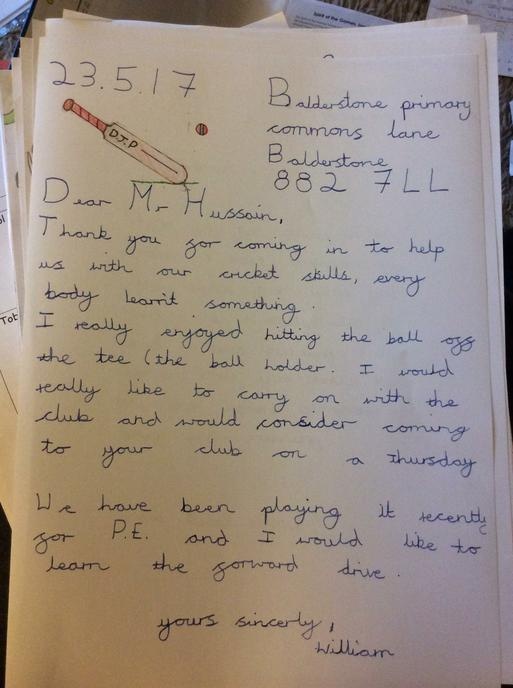 23.5.17
Balderstone primary
commons lane
Balderstone
882 7LL
D.J.P
Dear Mr Hussain,
Thank you for coming in to help
us with our cricket skills, every
body learnt something.
I really enjoyed hitting the ball off
the tee (the ball holder. I would
really like to carry on with the
club and would consider coming
to your club on a Thursday
We have been playing it recently
for P.E. and I would like to
learn the forward drive.
yours sincerly,
William